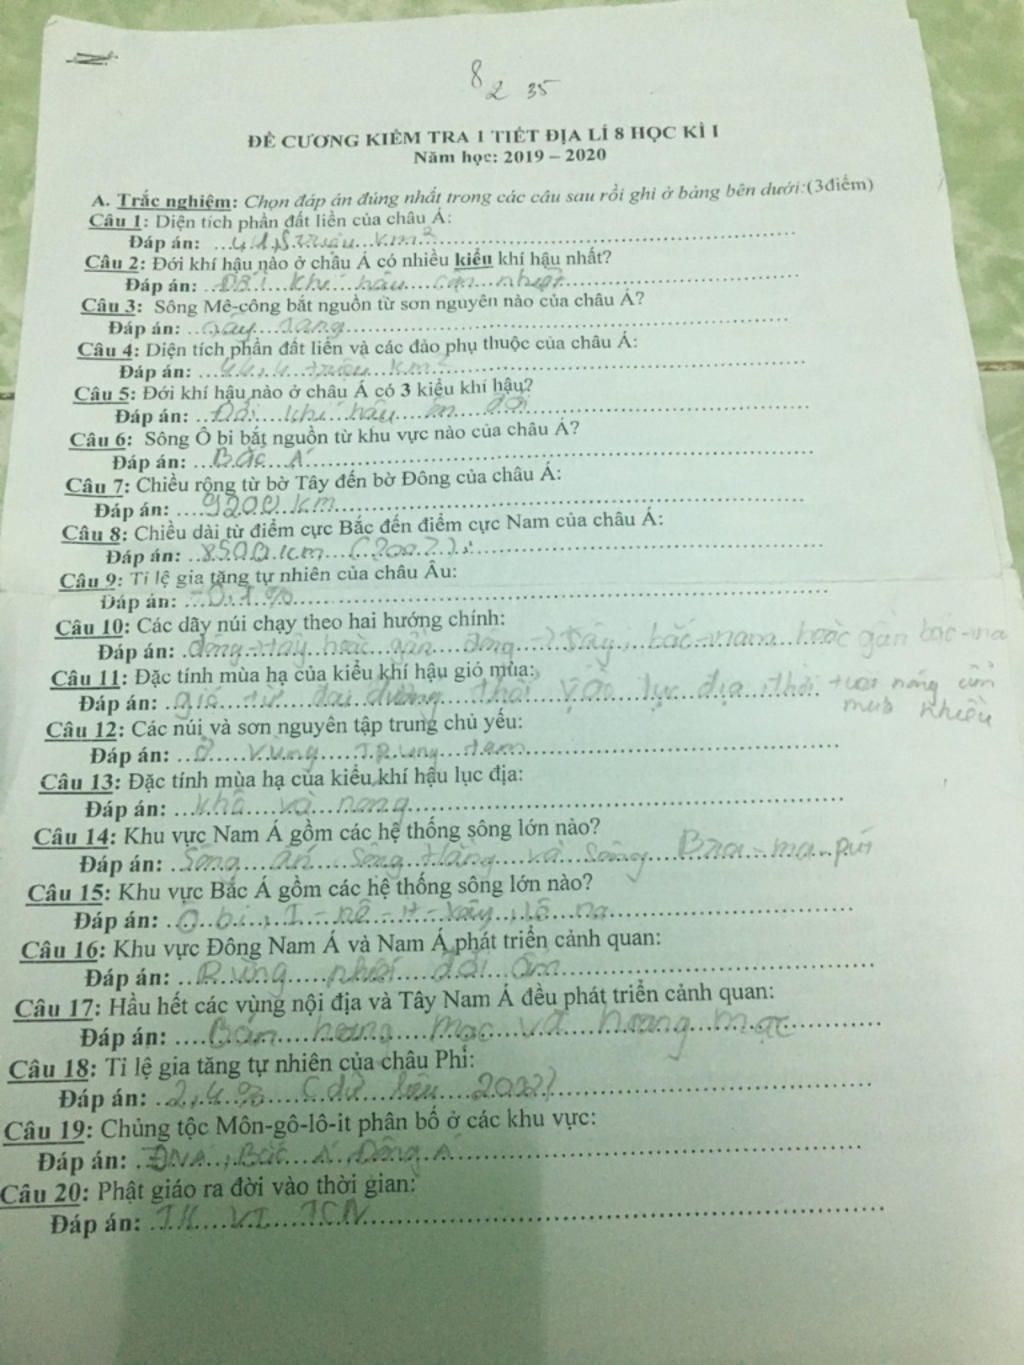 8
2 35
ĐỀ CƯƠNG KIỂM TRA 1 TIẾT ĐỊA LÍ 8 HỌC KÌ I
Năm học: 2019 – 2020
A. Trắc nghiệm: Chọn đáp án đúng nhất trong các câu sau rồi ghi ở bảng bên dưới:(3điểm)
Câu 1: Diện tích phần đất liền của châu Á:
Đáp án: 41,5 triệu km²
Câu 2: Đới khí hậu nào ở châu Á có nhiều kiểu khí hậu nhất?
Đáp án: Đới khí hậu cận nhiệt
Câu 3: Sông Mê-công bắt nguồn từ sơn nguyên nào của châu Á?
Đáp án: Tây Tạng
Câu 4: Diện tích phần đất liền và các đảo phụ thuộc của châu Á:
Đáp án: 44,4 triệu km²
Câu 5: Đới khí hậu nào ở châu Á có 3 kiểu khí hậu?
Đáp án: Đới khí hậu ôn đới
Câu 6: Sông Ô bi bắt nguồn từ khu vực nào của châu Á?
Đáp án: Bắc Á
Câu 7: Chiều rộng từ bờ Tây đến bờ Đông của châu Á:
Đáp án: 9200 km
Câu 8: Chiều dài từ điểm cực Bắc đến điểm cực Nam của châu Á:
Đáp án: 8500 km
Câu 9: Tỉ lệ gia tăng tự nhiên của châu Âu:
Đáp án: -0,1 %
Câu 10: Các dãy núi chạy theo hai hướng chính:
Đáp án: đông-tây hoặc gần đông -> tây, bắc-nam hoặc gần bắc-na
Câu 11: Đặc tính mùa hạ của kiểu khí hậu gió mùa:
Đáp án: gió từ đại dương thổi vào lục địa, thời tiết nóng ẩm
mưa nhiều
Câu 12: Các núi và sơn nguyên tập trung chủ yếu:
Đáp án: ở vùng trung tâm
Câu 13: Đặc tính mùa hạ của kiểu khí hậu lục địa:
Đáp án: khô và nóng
Câu 14: Khu vực Nam Á gồm các hệ thống sông lớn nào?
Đáp án: Sông ấn, sông Hằng và sông Bra-ma-pút
Câu 15: Khu vực Bắc Á gồm các hệ thống sông lớn nào?
Đáp án: Ô bi, I-nê-it-xây, lê na
Câu 16: Khu vực Đông Nam Á và Nam Á phát triển cảnh quan:
Đáp án: Rừng nhiệt đới ẩm
Câu 17: Hầu hết các vùng nội địa và Tây Nam Á đều phát triển cảnh quan:
Đáp án: Bán hoang mạc và hoang mạc
Câu 18: Tỉ lệ gia tăng tự nhiên của châu Phi:
Đáp án: 2,4 % (dữ liệu 2002)
Câu 19: Chủng tộc Môn-gô-lô-it phân bố ở các khu vực:
Đáp án: ĐNÁ, Bắc Á, Đông Á
Câu 20: Phật giáo ra đời vào thời gian:
Đáp án: TK VI TCN